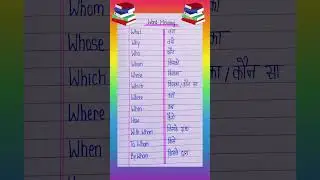 Word Meaning
What क्या
Why क्यों
Who कौन
Whom किसको
Whose किसका
Which किसका / कौन सा
Where कहाँ
When कब
How कैसे
With Whom किसके साथ
To Whom किसे
By Whom किसके द्वारा
Whom
Whose
का
Which
का / कौन सा
Where
When